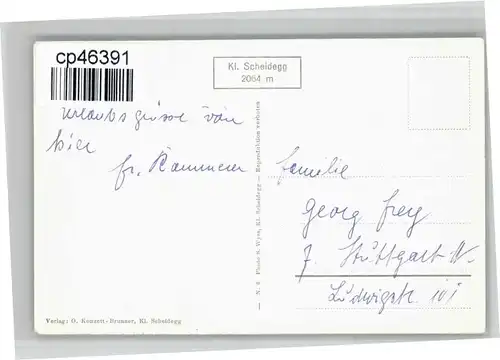 cp46391
Kl. Scheidegg
2064 m
Urlaubsgrüsse von
hier
fr. Kammerer
Familie
Georg Frey
7. Stuttgart-N.
Ludwigstr. 101
N. 8 Photo S. Wyss, Kl. Scheidegg — Reproduktion verboten
Verlag: O. Konzett-Brunner, Kl. Scheidegg